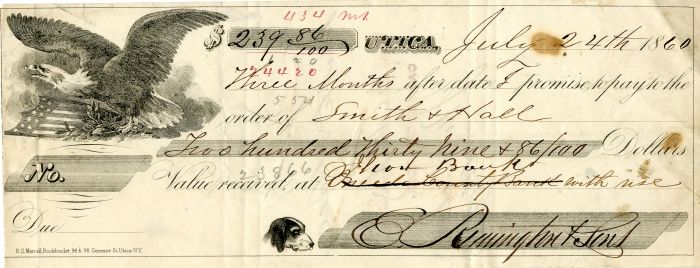 434 
$ 239 86/100 UTICA, July 24th 1860
20
24420
Three Months after date I promise to pay to the
order of Smith & Hall
Two hundred Thirty Nine & 86/100 Dollars
No.
23866
Value received, at Oneida County Bank with use
Due
E. Remington & Sons
B. S. Merrell, Bookbinder, 96 & 98 Genesee St. Utica N.Y.